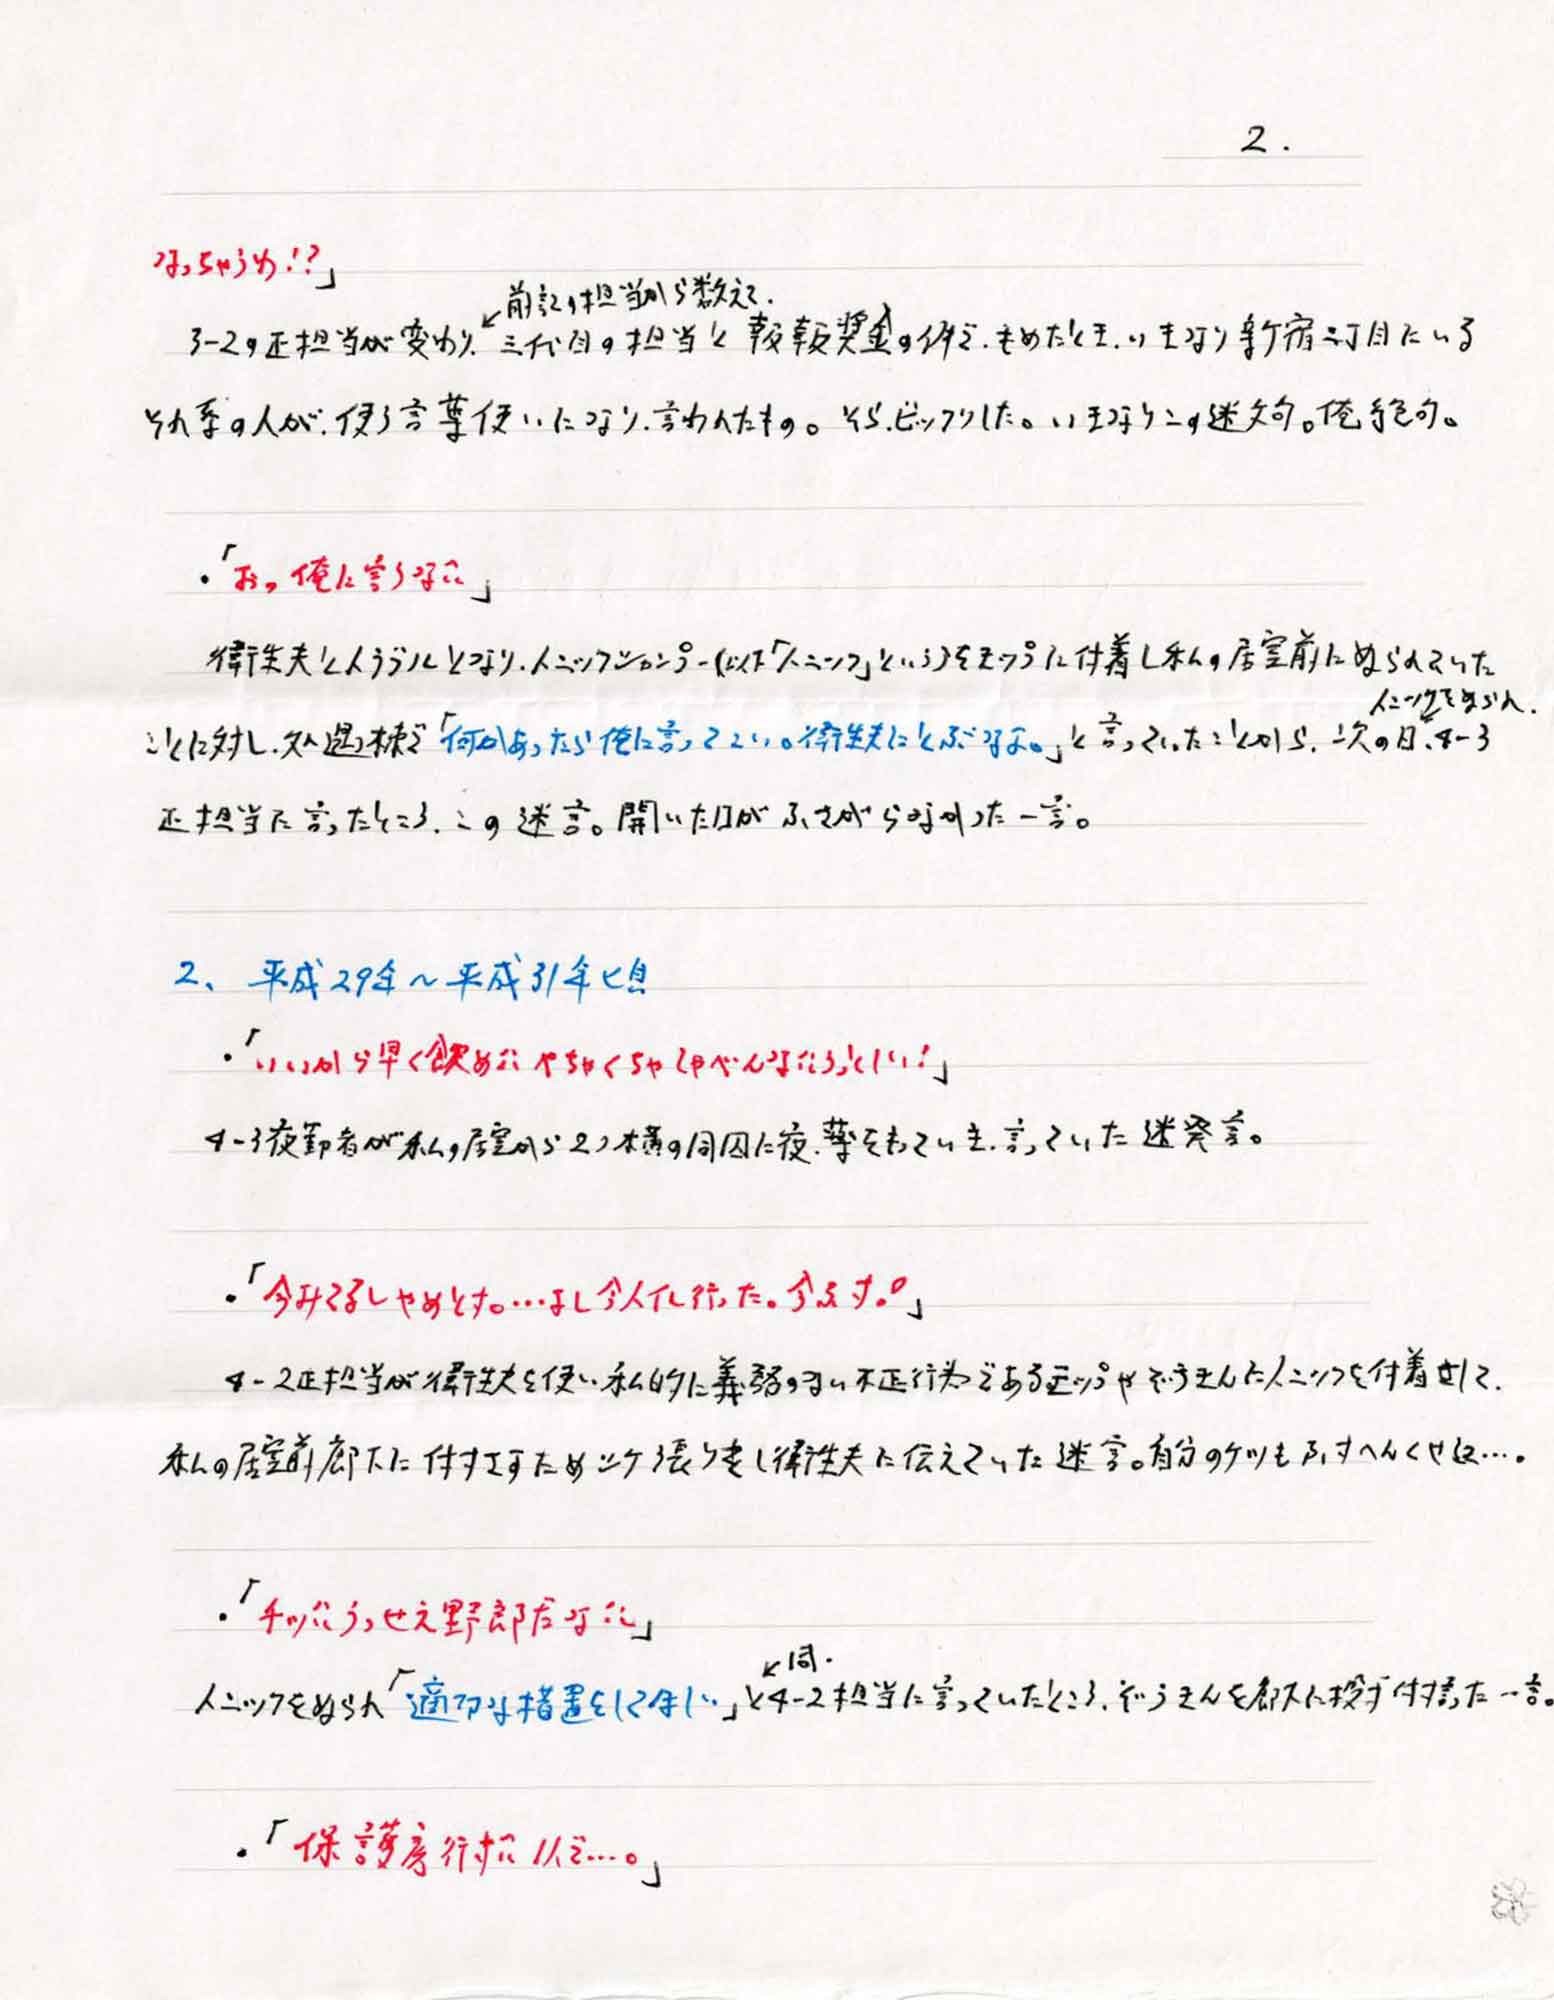 2.
なっちゃうわ!?」
前記の担当から数えて.
3-2の正担当が変わり、三代目の担当と報奨金の件で、もめたとき、いきなり新宿二丁目にいる
それ系の人が、使う言葉使いになり、言われたもの。そら、ビックリした。いきなりこの迷文句。俺絶句。
・「おっ俺に言うなよ」
衛生夫とトラブルとなり、
付着し私の居室前にぬられていた
ことに対し、処遇棟で「何かあったら俺に言ってこい。衛生夫にとぶなよ。」と言っていたことから、次の日、4-3
正担当に言ったところ、この迷言。開いた口がふさがらなかった一言。
2、平成29年〜平成31年と思
・「いいから早く飲めよ やちゃくちゃしゃべんなようっとしい!」
4-3夜勤者が私の居室から2つ横の同囚に夜、薬をもっていき、言っていた迷発言。
・「今みてるしやめとす。…よし今人化行った。今ふす。」
4-2正担当が衛生夫を使い私的に義務のない不正行為であるモップやぞうきんにニックを付着させて、
私の居室前廊下に付すさすためツケ張りをし衛生夫に伝えていた迷言。自分のケツもふけへんくせに…。
・「チッようっせえ野郎だなよ」
同.
をぬられ「適切な措置をしてほしい」と4-2担当に言っていたところ、ぞうきんを廊下に投げ付け言った一言。
・「保護房行すに